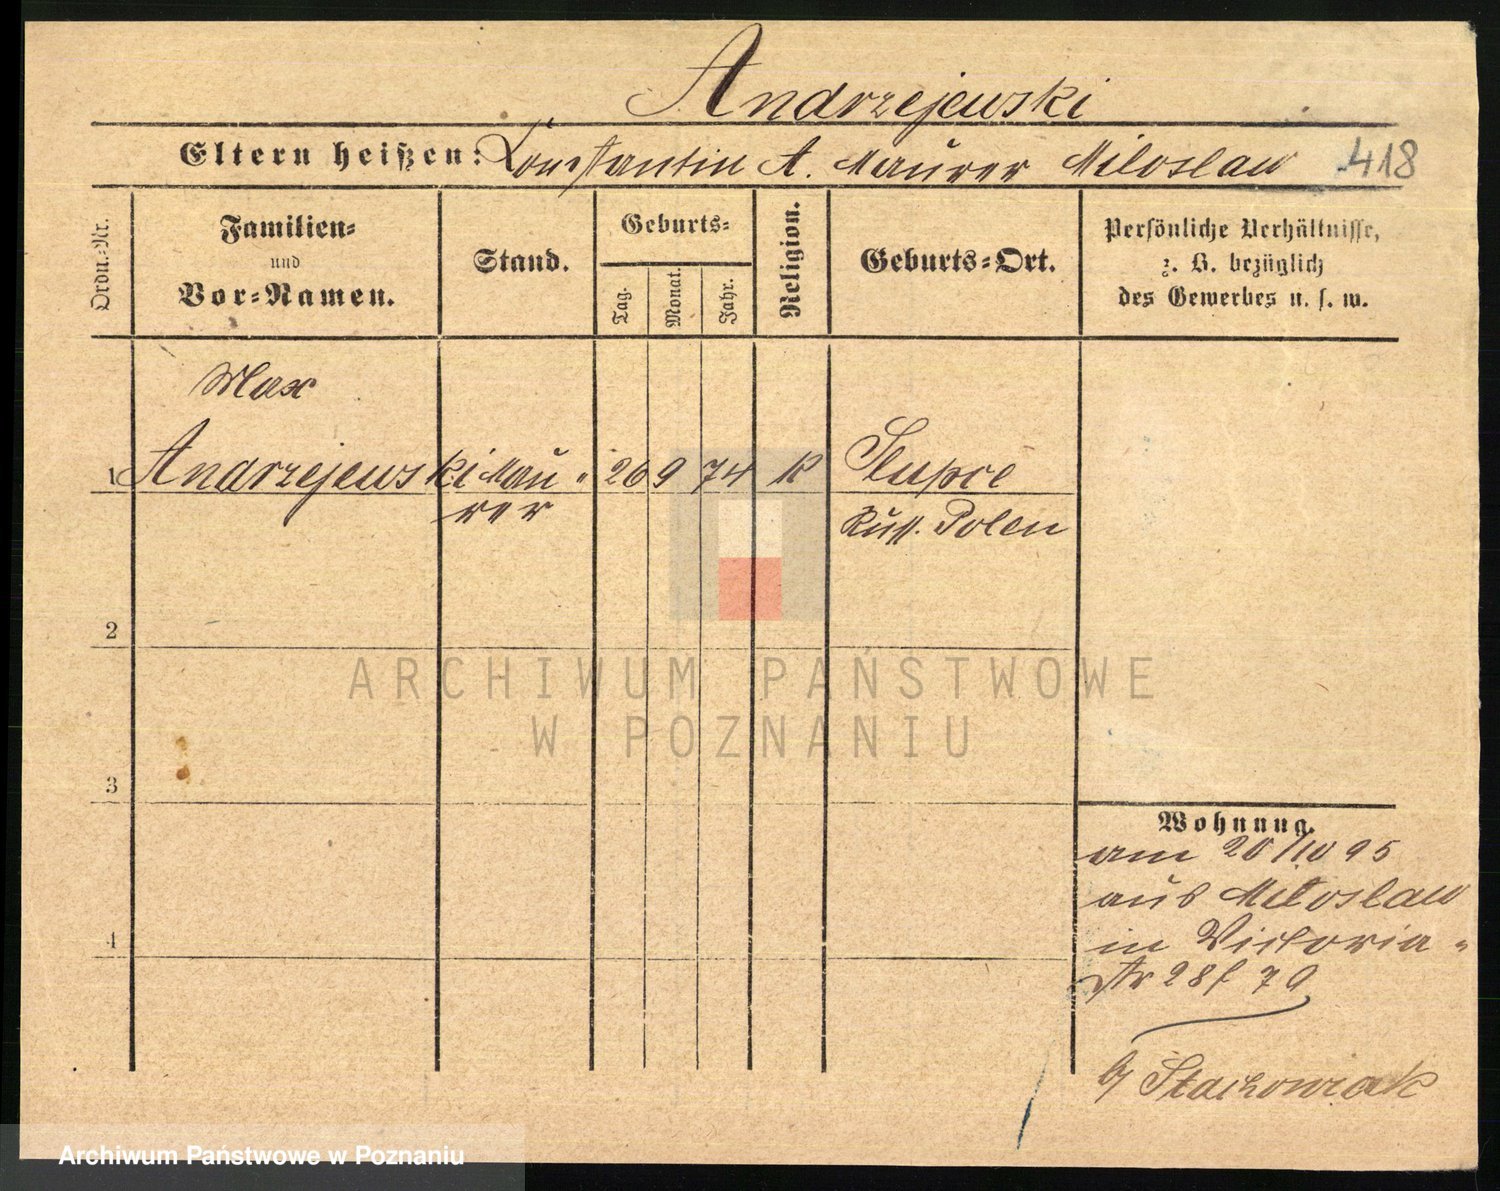 Andrzejewski
Eltern heißen: Constantin A. Maurer Miloslaw 418
Ordn.-Nr.
Familien-
und
Vor-Namen.
Stand.
Geburts-
Tag.
Monat.
Jahr.
Religion.
Geburts-Ort.
Persönliche Verhältnisse,
z. B. bezüglich
des Gewerbes u. s. w.
Max
1 Andrzejewski Mau- 26 9 74 K Slupce
rer Russ. Polen
2
3
4
Wohnung.
am 20/10 95
aus Miloslaw
in Victoria-
Str 28
Stachowiak
ARCHIWUM PAŃSTWOWE
W POZNANIU
Archiwum Państwowe w Poznaniu